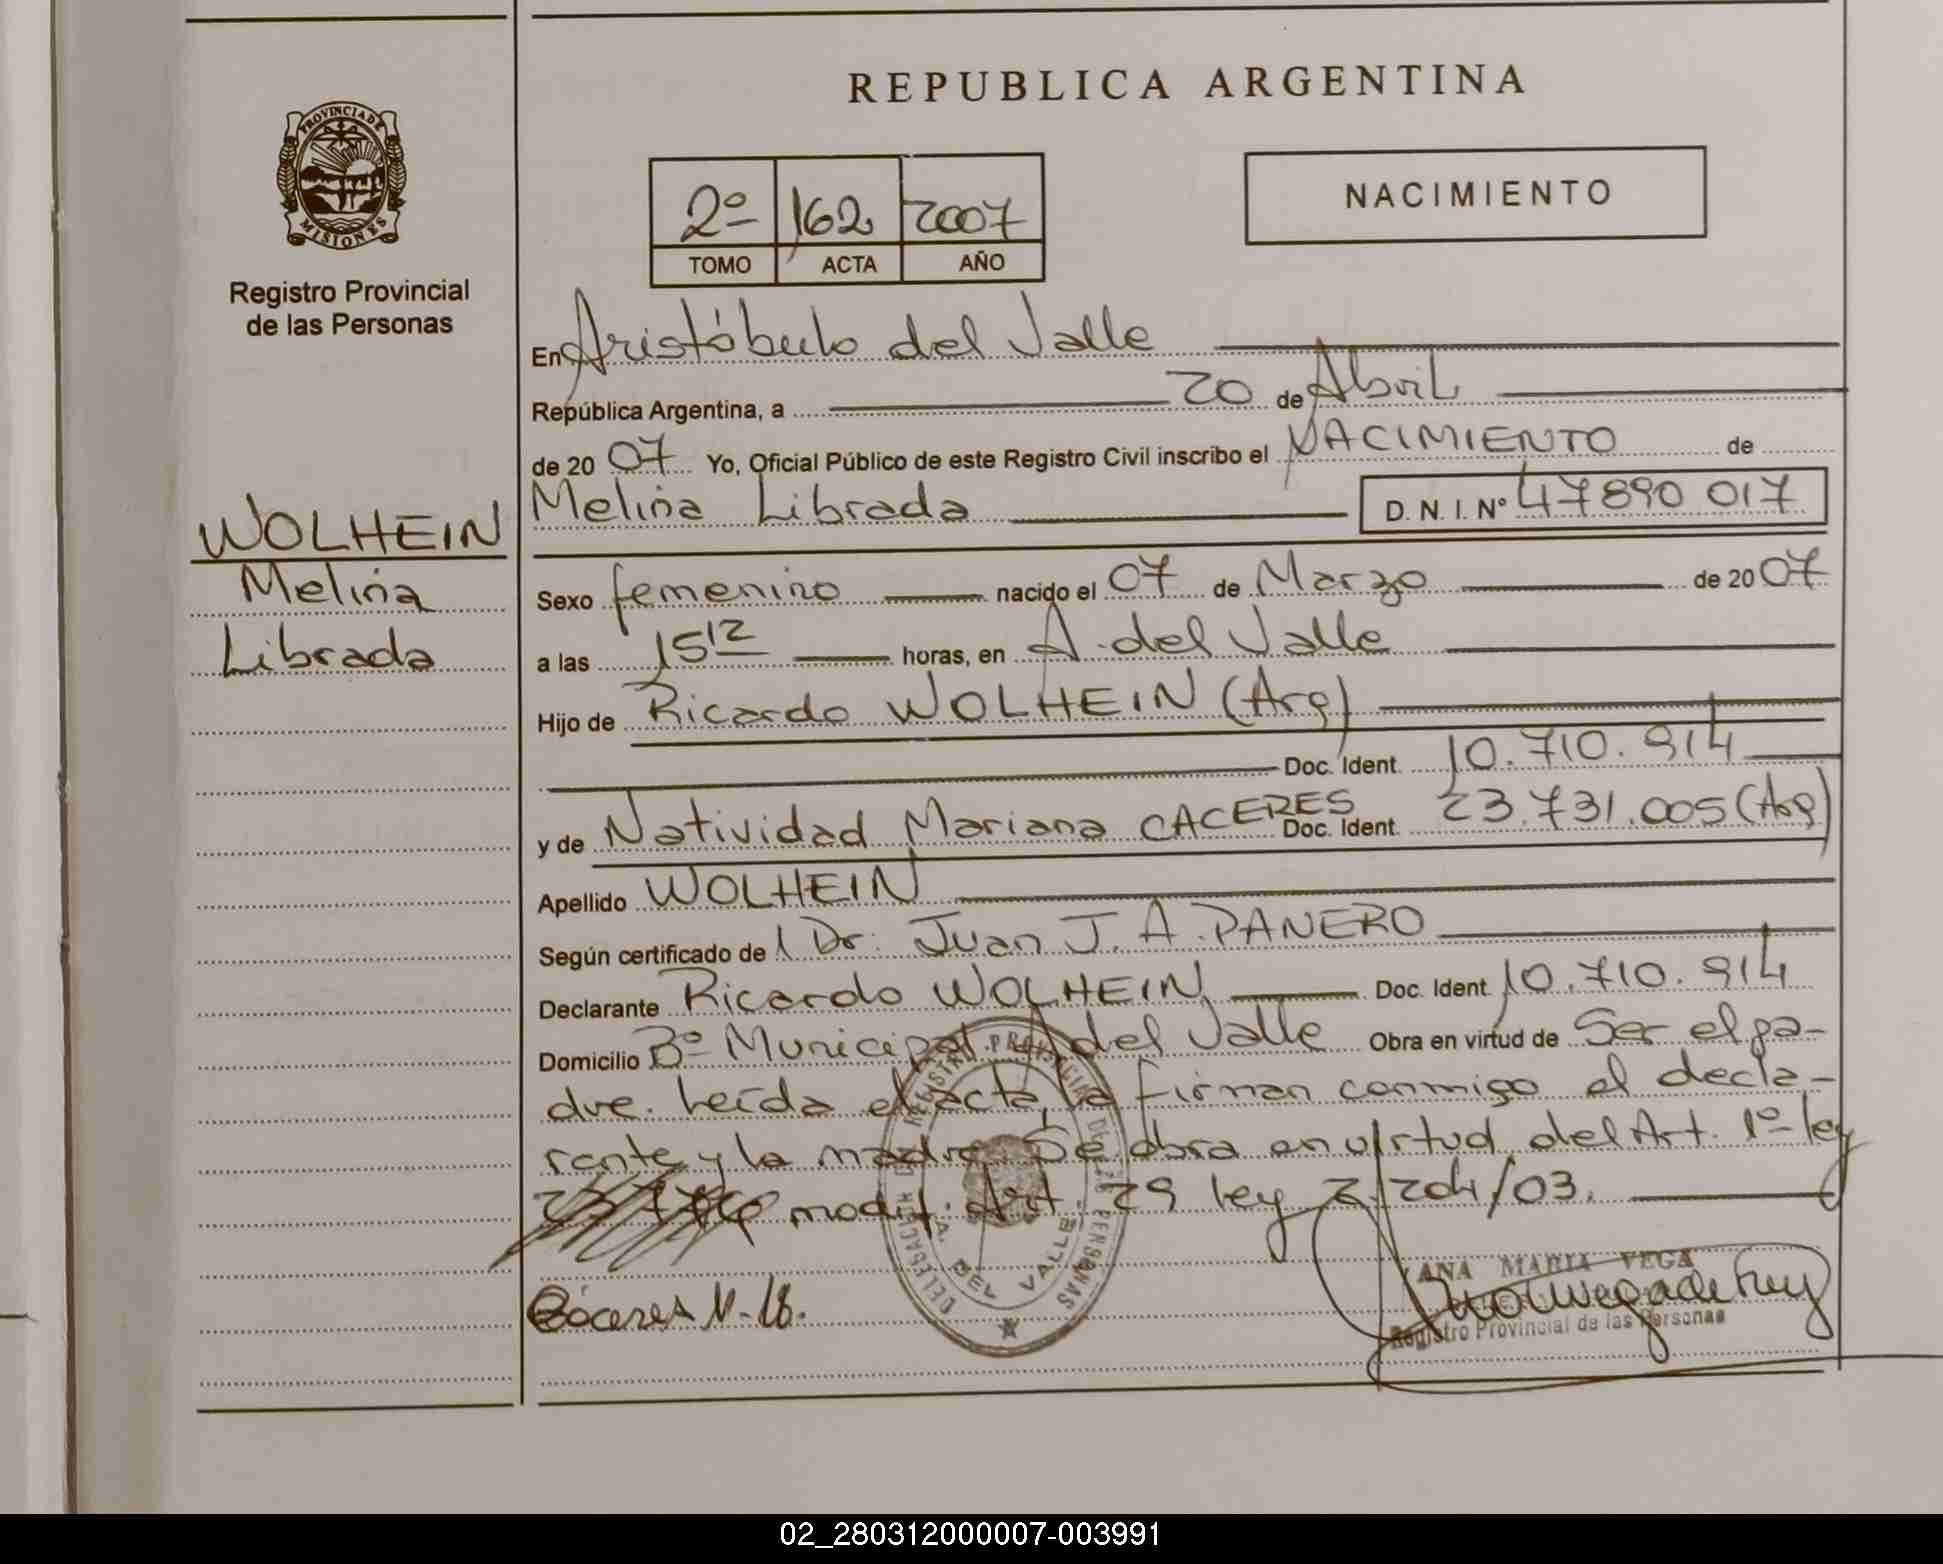 REPUBLICA ARGENTINA
PROVINCIA DE
MISIONES
Registro Provincial
de las Personas
2º 162 2007
TOMO ACTA AÑO
NACIMIENTO
En Aristóbulo del Valle
República Argentina, a 20 de Abril
de 2007 Yo, Oficial Público de este Registro Civil inscribo el NACIMIENTO de
Melina Librada D. N. I. Nº 47890 017
WOLHEIN
Melina
Librada
Sexo femenino nacido el 07 de Marzo de 2007
a las 15 12 horas, en A. del Valle
Hijo de Ricardo WOLHEIN (Arg)
Doc. Ident. 10.710.914
y de Natividad Mariana CACERES Doc. Ident. 23.731.005 (Arg)
Apellido WOLHEIN
Según certificado de l Dr. Juan J. A. PANERO
Declarante Ricardo WOLHEIN Doc. Ident. 10.710.914
Domicilio Bº Municipal A del Valle Obra en virtud de Ser el pa-
dre. Leída el acta, la firman conmigo el decla-
rante y la madre. Se obra en virtud del Art. 1º ley
modif. Art. 29 ley 2/204/03.
DELEGACION REGISTRO PROVINCIAL DE LAS PERSONAS
A. DEL VALLE
Cáceres N. M.
ANA MARIA VEGA
Registro Provincial de las Personas
02_280312000007-003991